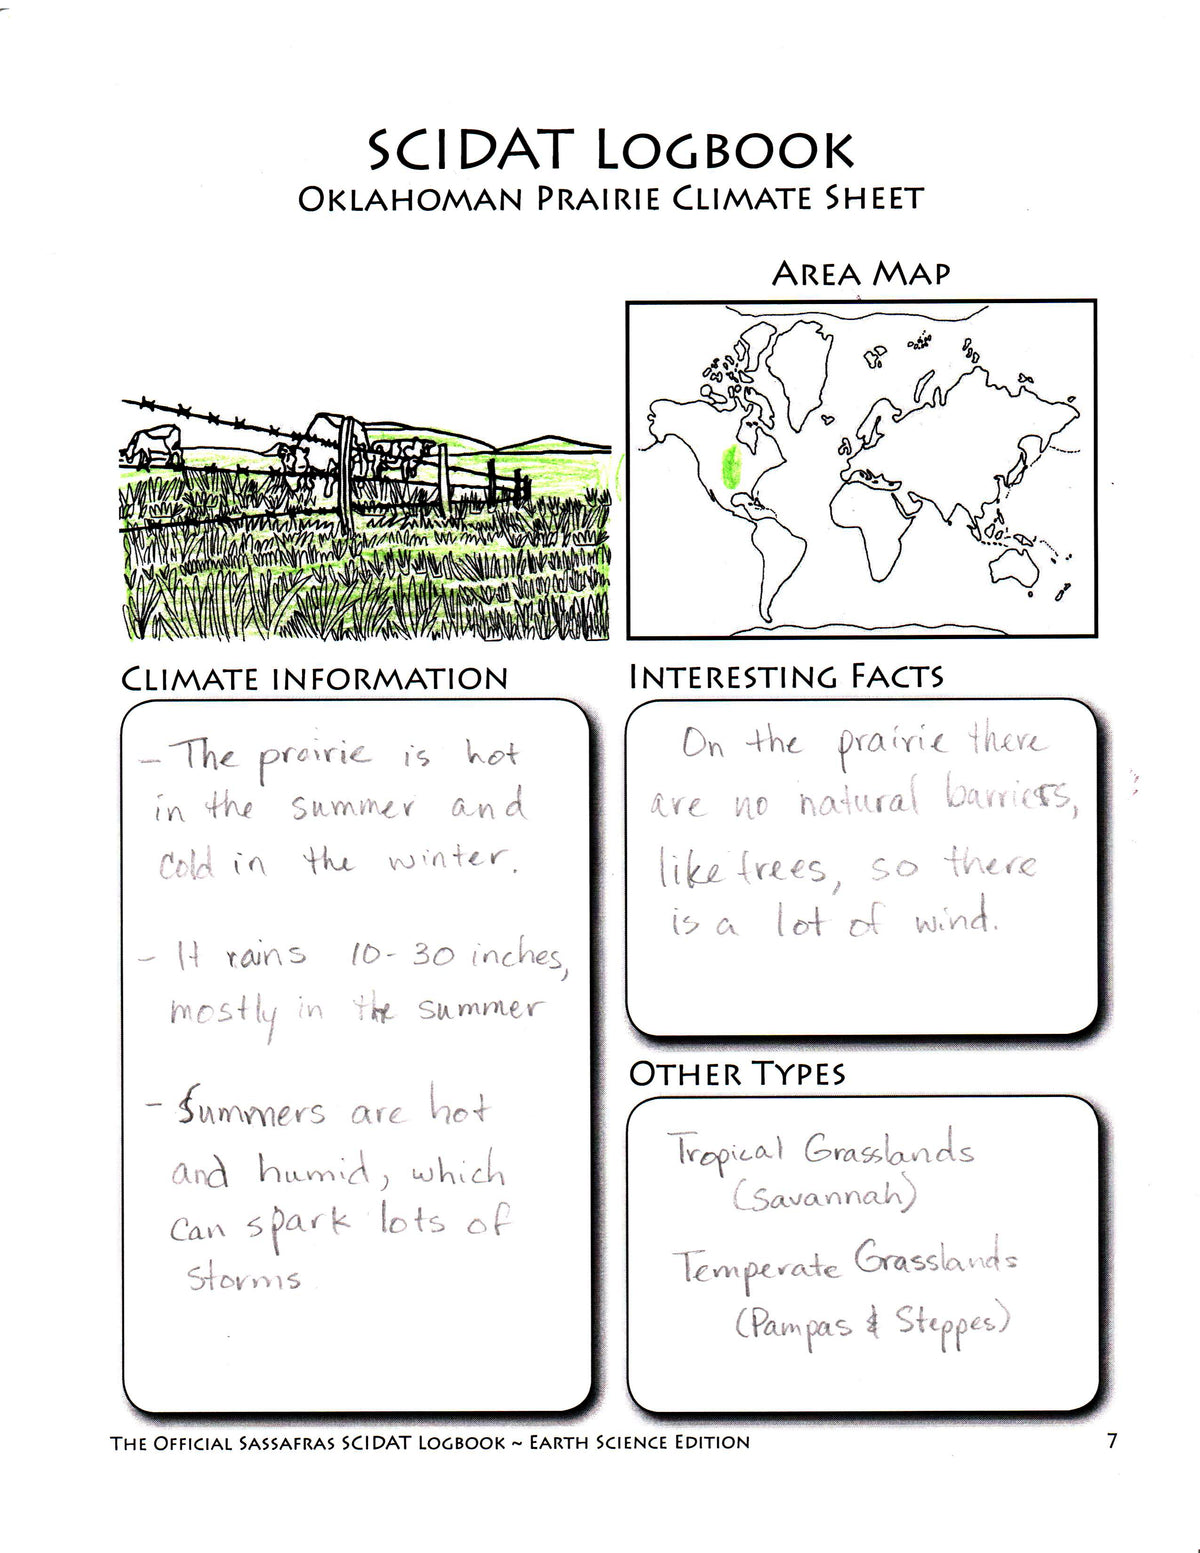 SCIDAT LOGBOOK
OKLAHOMAN PRAIRIE CLIMATE SHEET
AREA MAP
CLIMATE INFORMATION
- The prairie is hot
in the summer and
cold in the winter.
- It rains 10-30 inches,
mostly in the summer
- Summers are hot
and humid, which
can spark lots of
storms
INTERESTING FACTS
On the prairie there
are no natural barriers,
like trees, so there
is a lot of wind.
OTHER TYPES
Tropical Grasslands
(Savannah)
Temperate Grasslands
(Pampas & Steppes)
THE OFFICIAL SASSAFRAS SCIDAT LOGBOOK ~ EARTH SCIENCE EDITION
7